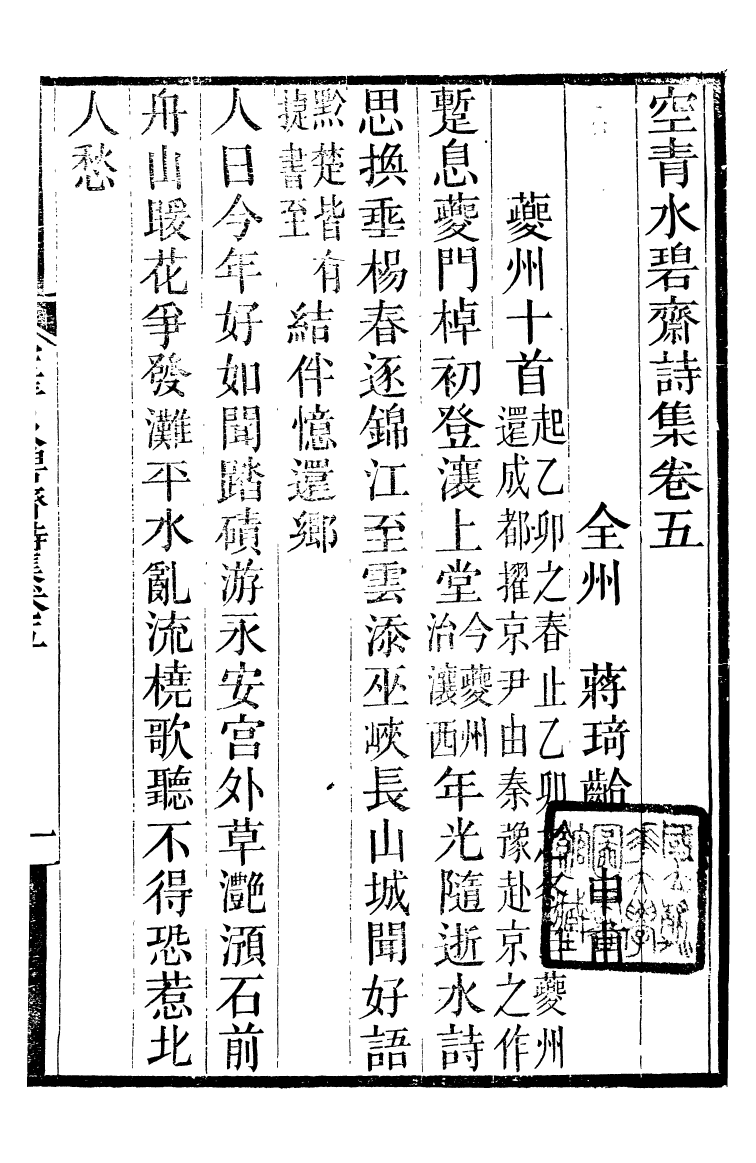 空青水碧齋詩集卷五
全州 蔣琦齡申甫
夔州十首 起乙卯之春止乙卯之冬夔州
還成都擢京尹由秦豫赴京之作
蹔息夔門棹初登瀼上堂今夔州治瀼西年光隨逝水詩
思換垂楊春逐錦江至雲添巫峽長山城聞好語
黔楚皆有捷書至 結伴憶還鄉
人日今年好如聞踏磧游永安宮外草灩澦石前
舟山暖花爭發灘平水亂流橈歌聽不得恐惹北
人愁
空青水碧齋詩集卷五
一